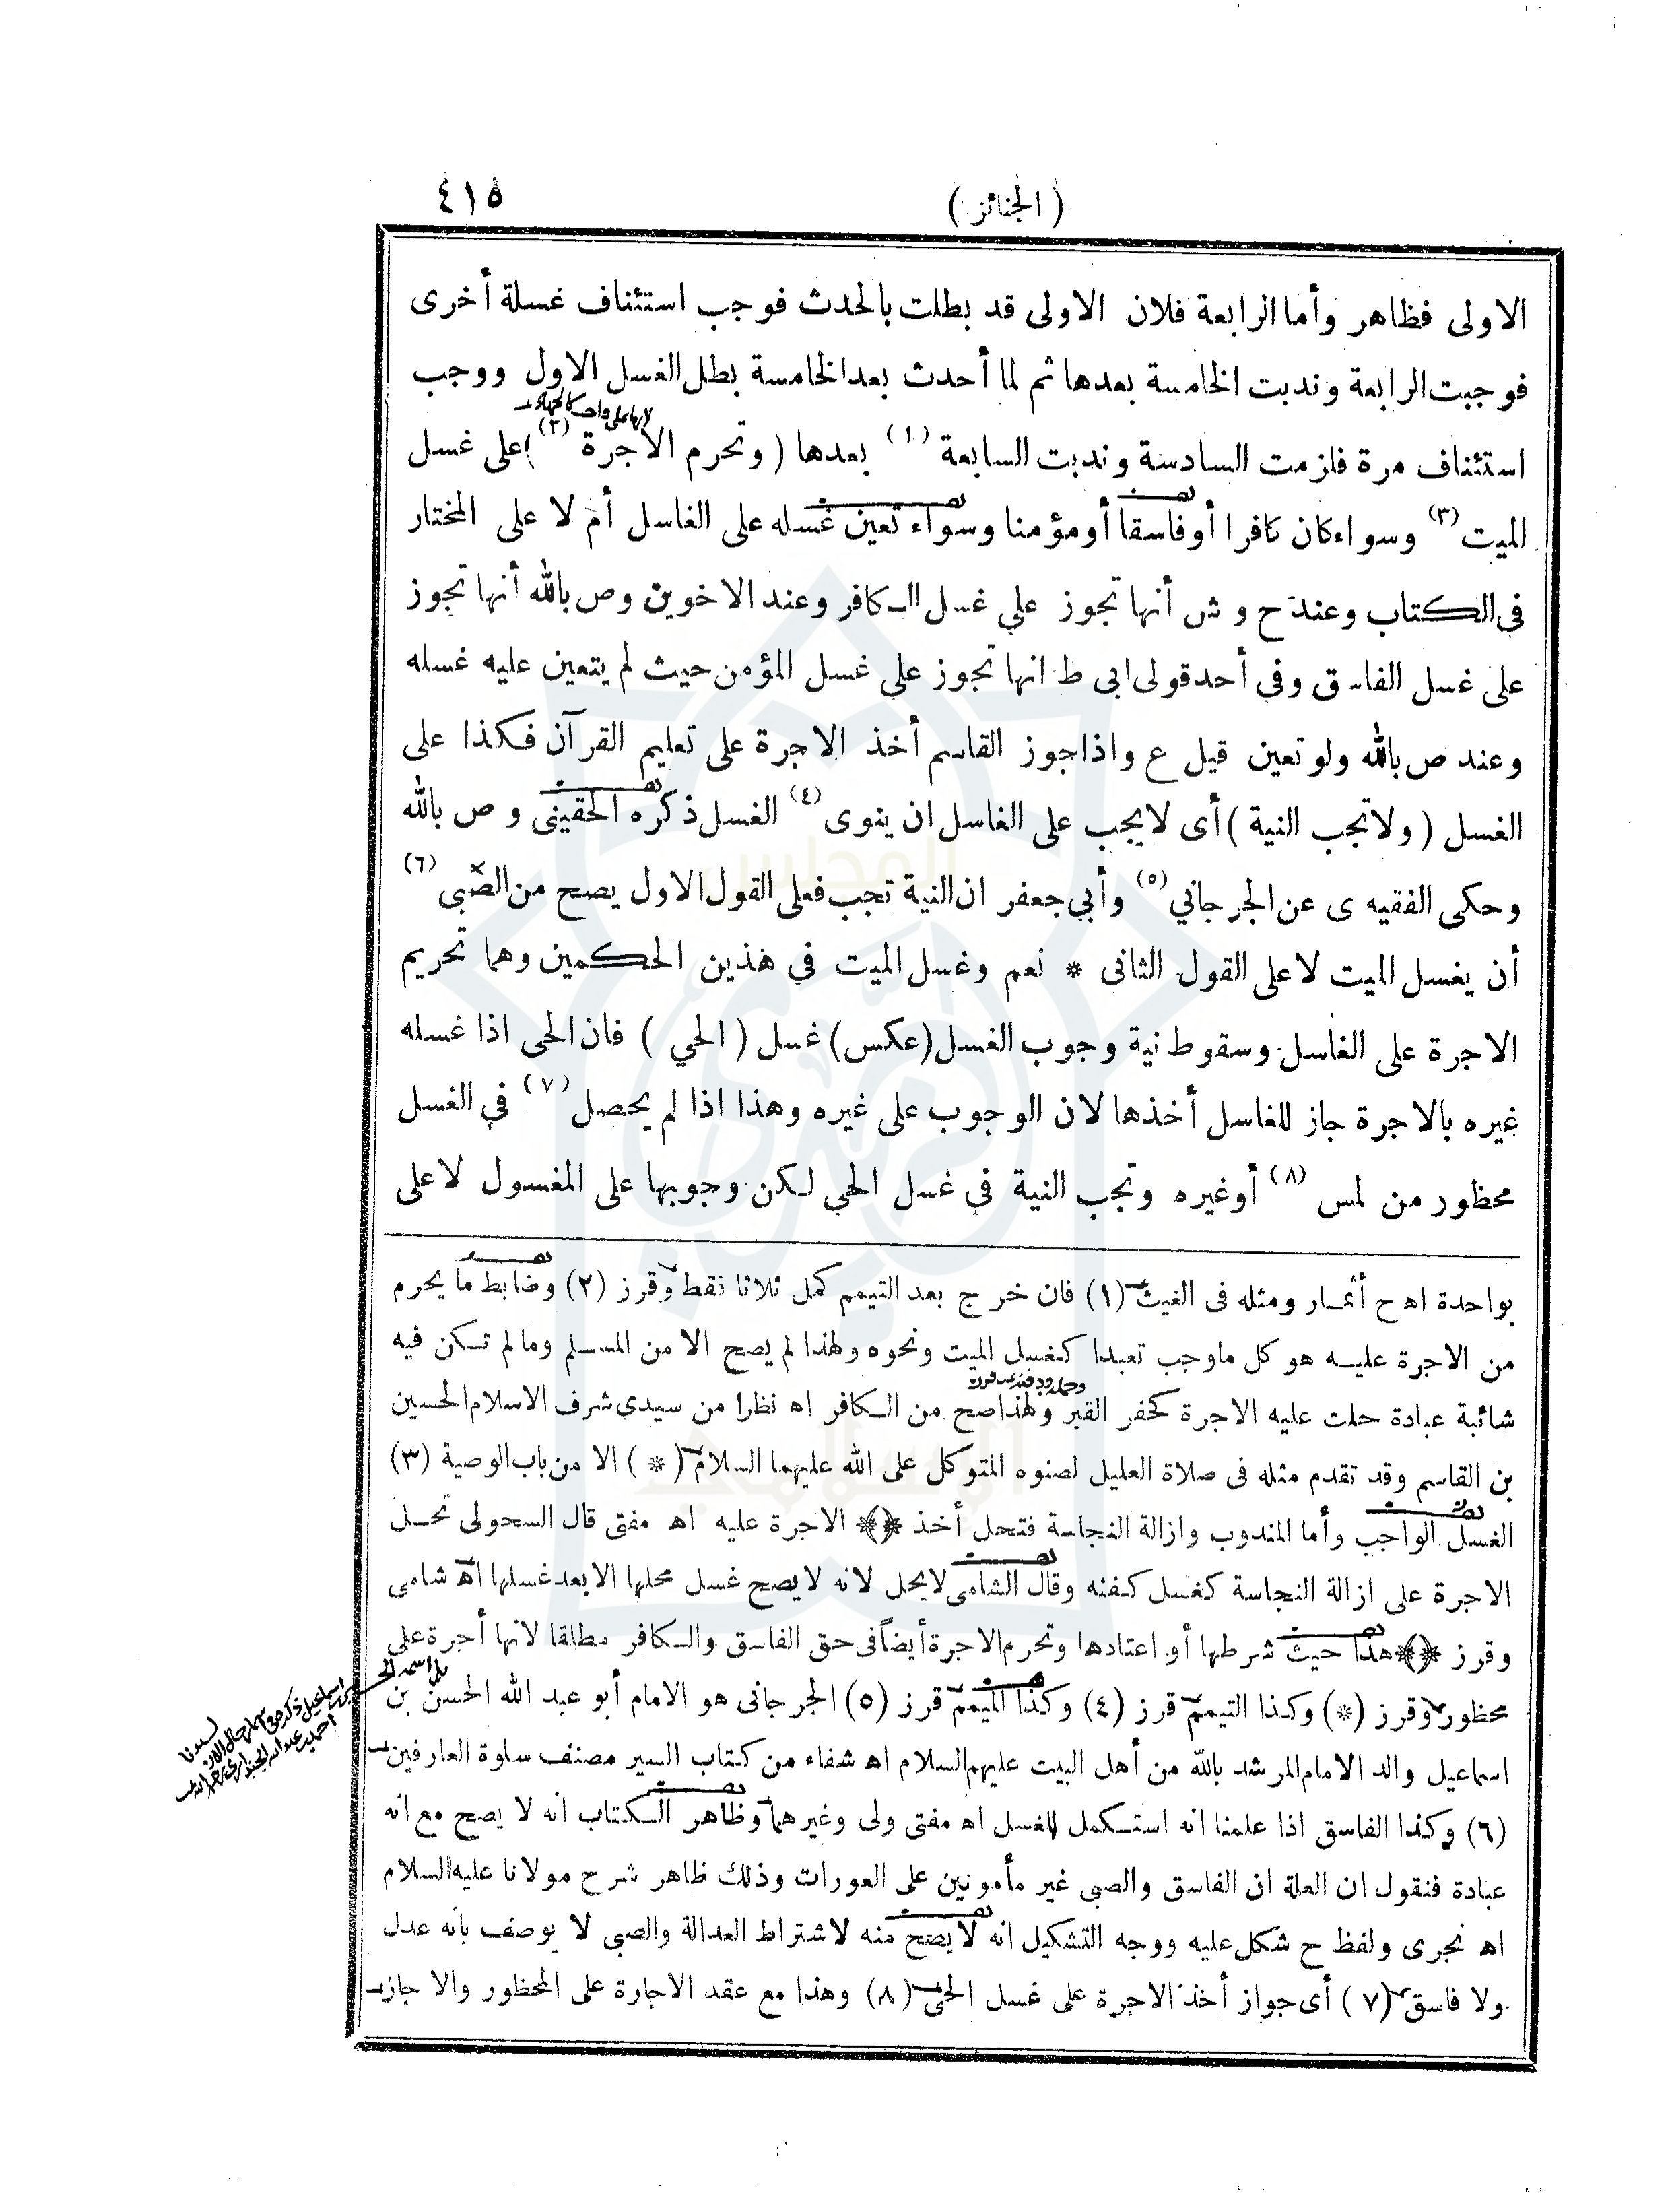 (الجنائز)
٤١٥
الاولى فظاهر وأما الرابعة فلان الاولى قد بطلت بالحدث فوجب استئناف غسلة أخرى
فوجبت الرابعة وندبت الخامسة بعدها ثم لما أحدث بعد الخامسة بطل الغسل الاول ووجب
لانها على واجب كالجهاد
استئناف مرة فلزمت السادسة وندبت السابعة (١) بعدها (وتحرم الاجرة (٢)) على غسل
الميت (٣) وسواء كان كافرا أو فاسقا أو مؤمنا وسواء تعين غسله على الغاسل أم لا على المختار
فى الكتاب وعند ح و ش أنها تجوز على غسل الكافر وعند الاخوين وص بالله أنها تجوز
على غسل الفاسق وفي أحد قولى ابى ط انها تجوز على غسل المؤمن حيث لم يتعين عليه غسله
وعند ص بالله ولو تعين قيل ع واذا جوز القاسم أخذ الاجرة على تعليم القرآن فكذا على
الغسل (ولا تجب النية) أى لا يجب على الغاسل ان ينوى (٤) الغسل ذكره الحقينى و ص بالله
وحكى الفقيه ى عن الجرجاني (٥) وأبي جعفر ان النية تجب فعلى القول الاول يصح من الصبى (٦)
أن يغسل الميت لا على القول الثانى * نعم وغسل الميت في هذين الحكمين وهما تحريم
الاجرة على الغاسل وسقوط نية وجوب الغسل (عكس) غسل (الحي) فان الحى اذا غسله
غيره بالاجرة جاز للغاسل أخذها لان الوجوب على غيره وهذا اذا لم يحصل (٧) في الغسل
محظور من لمس (٨) أو غيره وتجب النية في غسل الحي لكن وجوبها على المغسول لا على
بواحدة اه ح أثمار ومثله فى الغيث (١) فان خرج بعد التيمم كمل ثلاثا فقط وقرز (٢) وضابط ما يحرم
من الاجرة عليه هو كل ما وجب تعبدا كغسل الميت ونحوه ولهذا لم يصح الا من المسلم وما لم تكن فيه
شائبة عبادة حلت عليه الاجرة كحفر القبر ولهذا صح من الكافر اه نظرا من سيدى شرف الاسلام الحسين
بن القاسم وقد تقدم مثله فى صلاة العليل لصنوه المتوكل على الله عليهما السلام (*) الا من باب الوصية (٣)
الغسل الواجب وأما المندوب وازالة النجاسة فتحل أخذ ﴿*﴾ الاجرة عليه اه مفتى قال السحولى تحل
الاجرة على ازالة النجاسة كغسل كفنه وقال الشامى لا يحل لانه لا يصح غسل محلها الا بعد غسلها اه شامى
وقرز ﴿*﴾ هذا حيث شرطها أو اعتادها وتحرم الاجرة أيضاً فى حق الفاسق والكافر مطلقا لانها أجرة على
محظور وقرز (*) وكذا التيمم قرز (٤) وكذا الميمم قرز (٥) الجرجانى هو الامام أبو عبد الله الحسن بن
اسماعيل والد الامام المرشد بالله من أهل البيت عليهم السلام اه شفاء من كتاب السير مصنف سلوة العارفين
(٦) وكذا الفاسق اذا علمنا انه استكمل الغسل اه مفتى ولى وغيرهما وظاهر الكتاب انه لا يصح مع انه
عبادة فنقول ان العلة ان الفاسق والصبى غير مأمونين على العورات وذلك ظاهر شرح مولانا عليه السلام
اه نجرى ولفظ ح شكل عليه ووجه التشكيل انه لا يصح منه لاشتراط العدالة والصبى لا يوصف بأنه عدل
ولا فاسق (٧) أى جواز أخذ الاجرة على غسل الحى (٨) وهذا مع عقد الاجارة على المحظور والا جاز